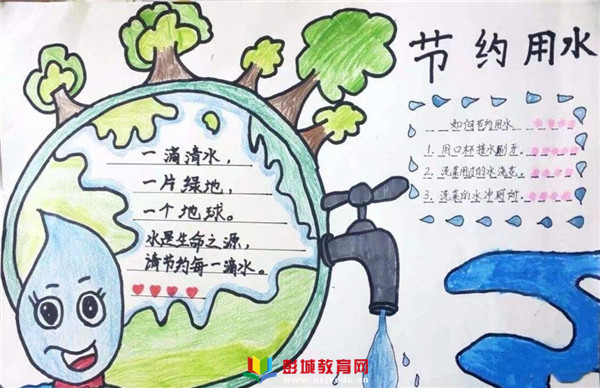 节约用水
如何节约用水
1. 用口杯接水刷牙。
2. 洗菜用过的水浇花。
3. 洗菜的水冲厕所。
一滴清水，
一片绿地，
一个地球。
水是生命之源，
请节约每一滴水。
彭城教育网